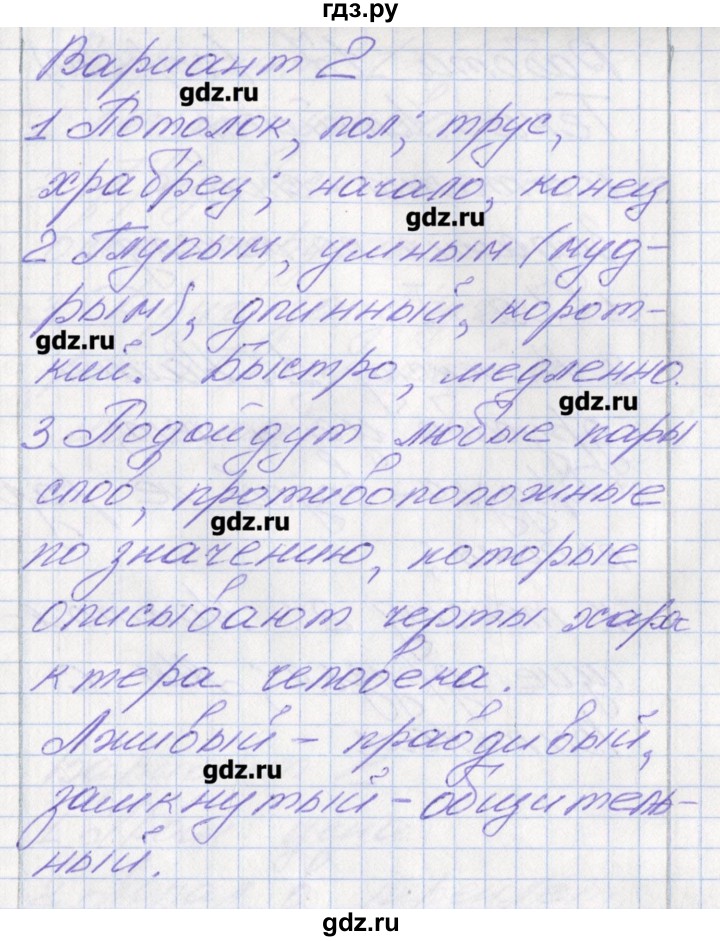 гдз.ру
Вариант 2
gdz.ru
1 Потолок, пол; трус,
храбрец; начало, конец.
gdz.ru
2 Глупым, умным (муд-
рым), длинный, корот-
gdz.ru
кий. Быстро, медленно.
gdz.ru
3 Подойдут любые пары
слов, противоположные
gdz.ru
по значению, которые
описывают черты хара
ктера человека.
Лживый – правдивый,
gdz.ru
замкнутый – общитель-
ный.
gdz.ru